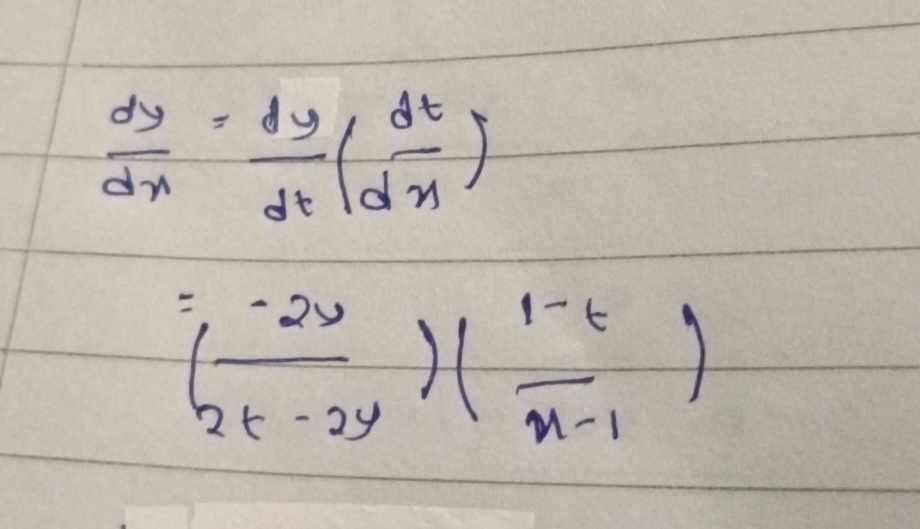 dy/dx = dy/dt (dt/dx)
= (-2y/2t-2y)(1-t/x-1)